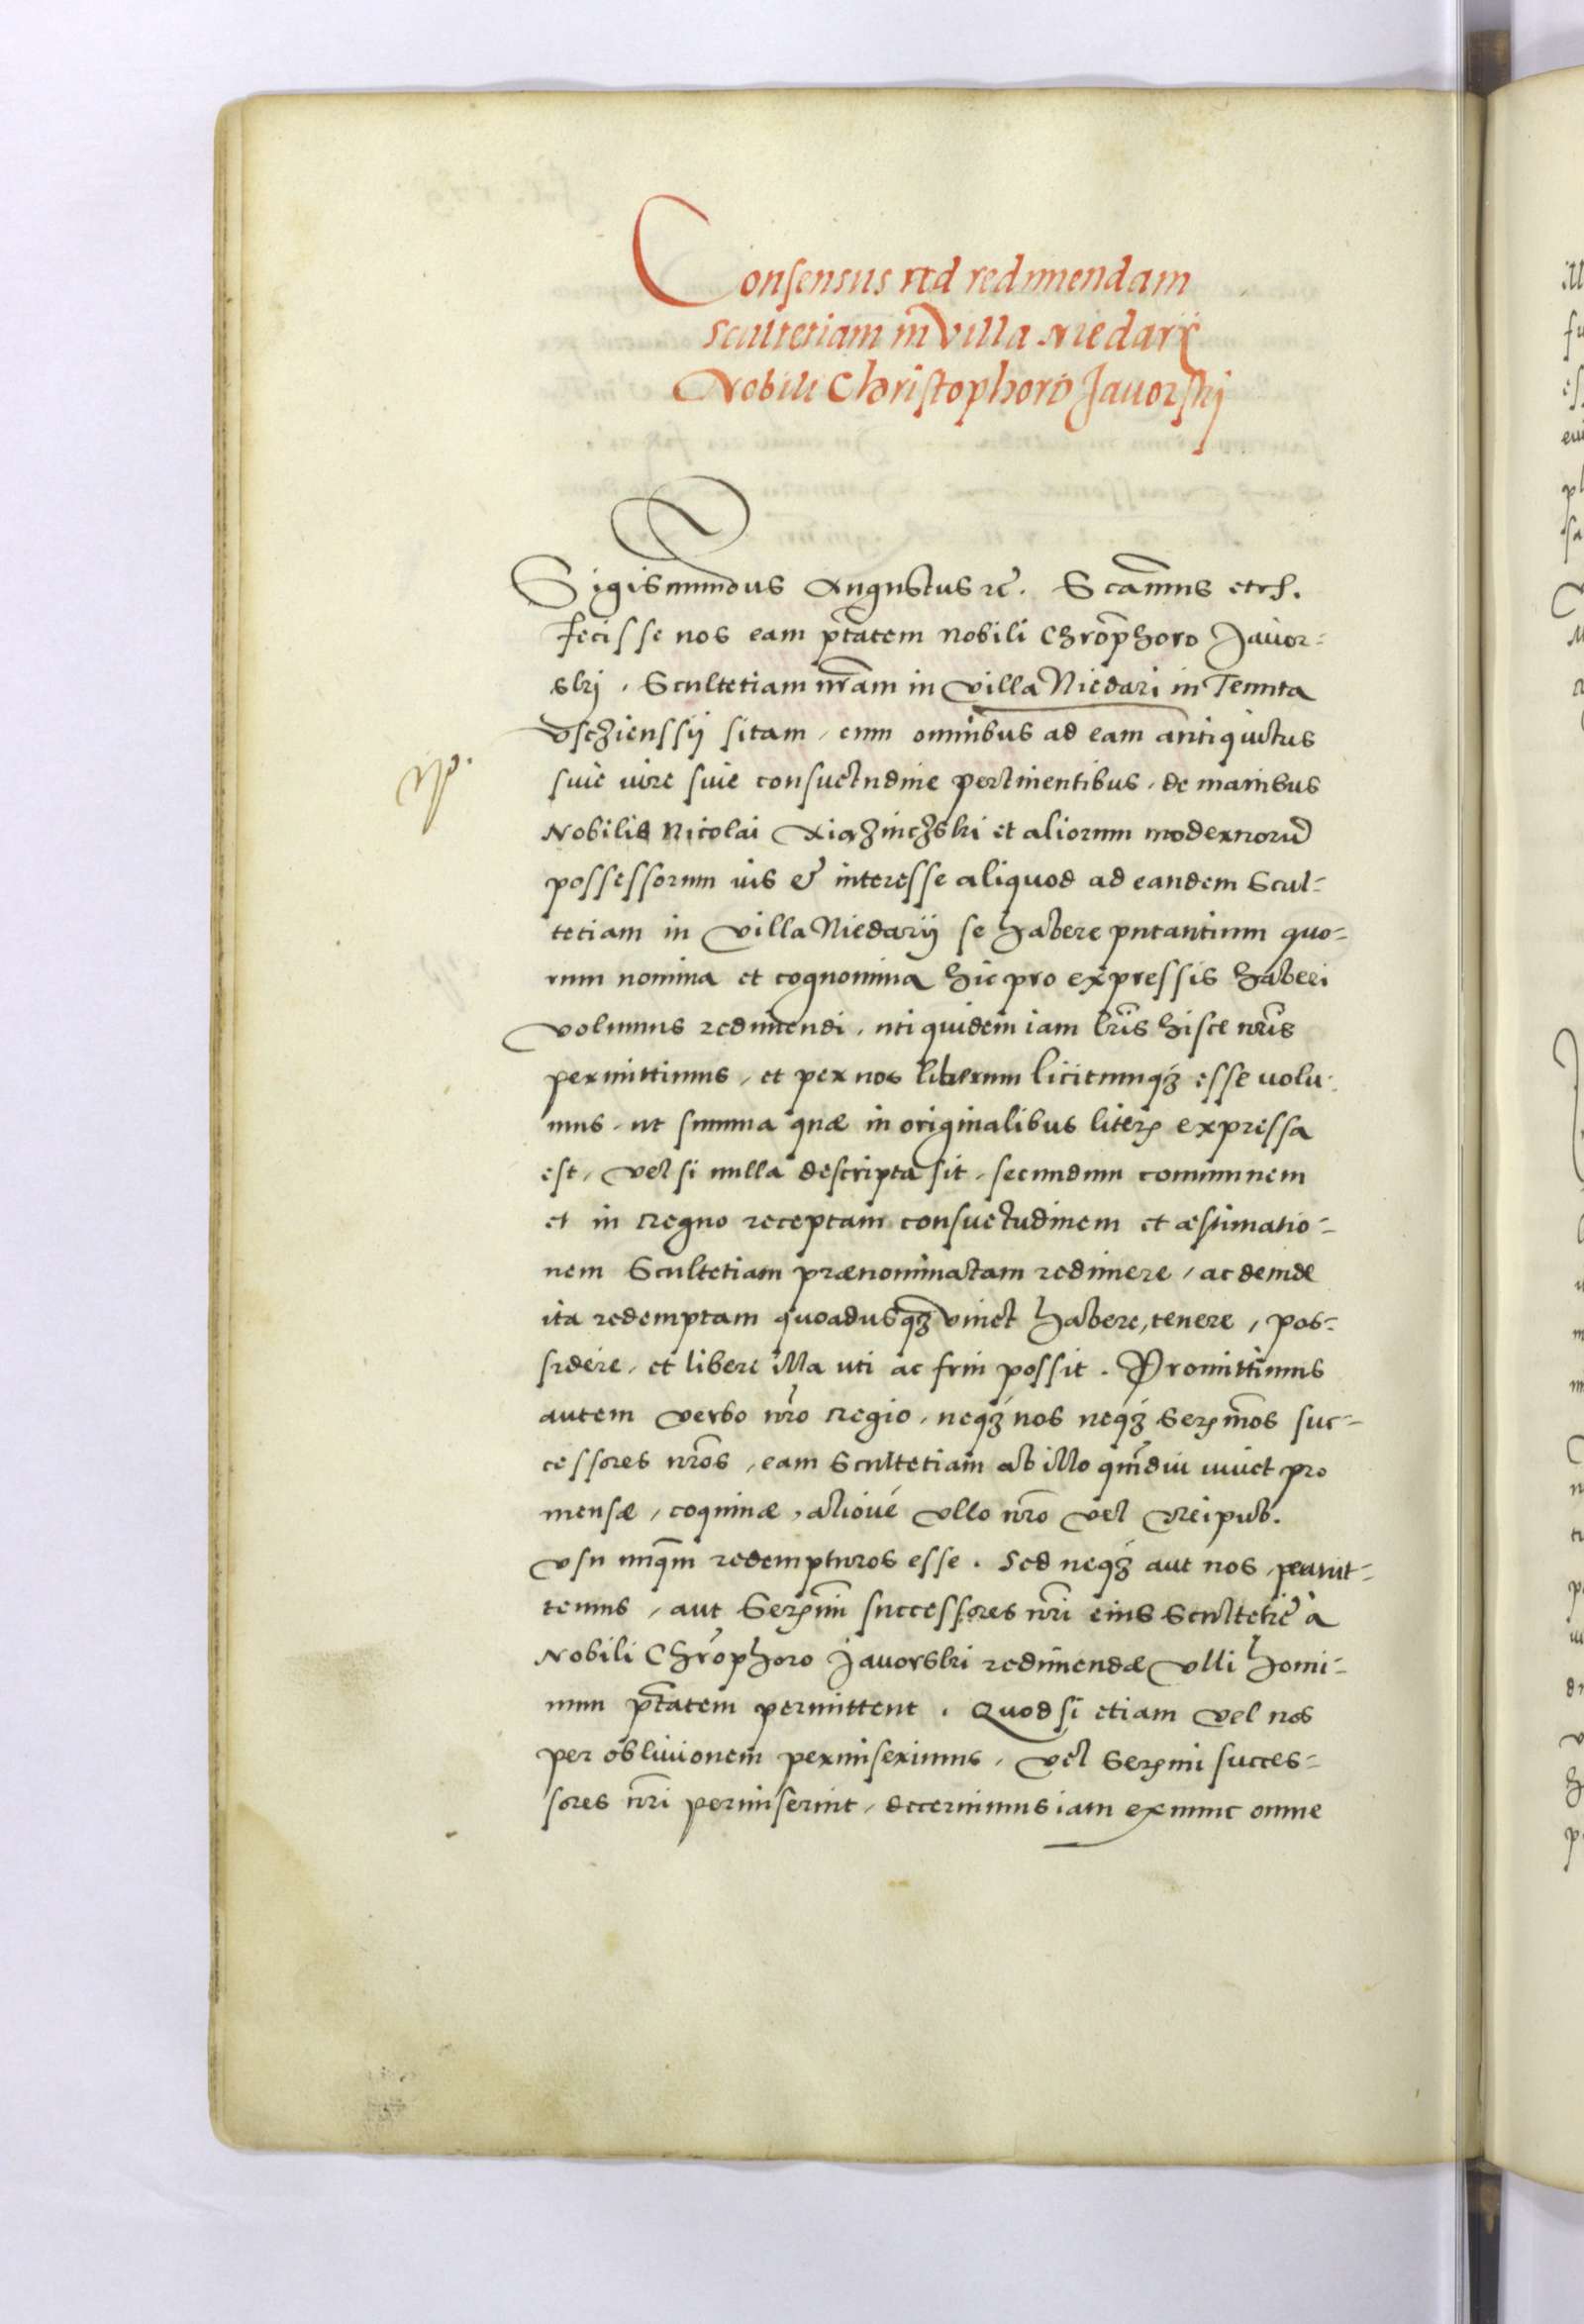 Consensus ad redimendam
scultetiam in Villa Niedarij
Nobili Christophoro Javorskj
Sigismundus Augustus rc̃. S cãmus etcꝭ.
fecisse nos eam ptãtem nobili Chrõphoro Javor-
skj, Scultetiam nr̃am in villa Niedari in Tennta
Vsczienssij sitam, cum omnibus ad eam antiquitus
siue iure siue consuetudine pertinentibus, de manibus
np.
Nobilis Nicolai et aliorum modernorũ
possessorum ius & interesse aliquod ad eandem Scul-
tetiam in villa Niedarij se habere putantium quo-
rum nomina et cognomina hic pro expressis haberi
volumus redimendi, uti quidem iam lr̃is hisce nr̃is
permittimus, et per nos liberum licitumqꝫ esse volu-
mus, ut summa quæ in originalibus literꝭ expressa
est, vel si nulla descripta sit, secundum communem
et in regno receptam consuetudinem et æstimatio-
nem Scultetiam prænominatam redimere, ac deinde
ita redemptam quoadusqꝫ vixet habere, tenere, pos-
sidere, et libere illa uti ac frui possit. Promittimus
autem verbo nr̃o regio, neqꝫ nos neqꝫ Serꝭmos suc-
cessores nr̃os, eam Scultetiam ab illo qm̃diu uiuet pro
mensæ, coquinæ, alioué vllo nr̃o vel reipub.
vsu unq̃m redempturos esse. Sed neqꝫ aut nos, permit-
temus, aut Serꝭmi successores nr̃i eius Scultetiẽ à
Nobili Chrõphoro Javorski redimendæ vlli homi-
num ptãtem permittent. Quod si etiam vel nos
per obliuionem permiserimus, vel Serꝭmi succes-
sores nr̃i permiserint, decernimus iam ex nunc omne